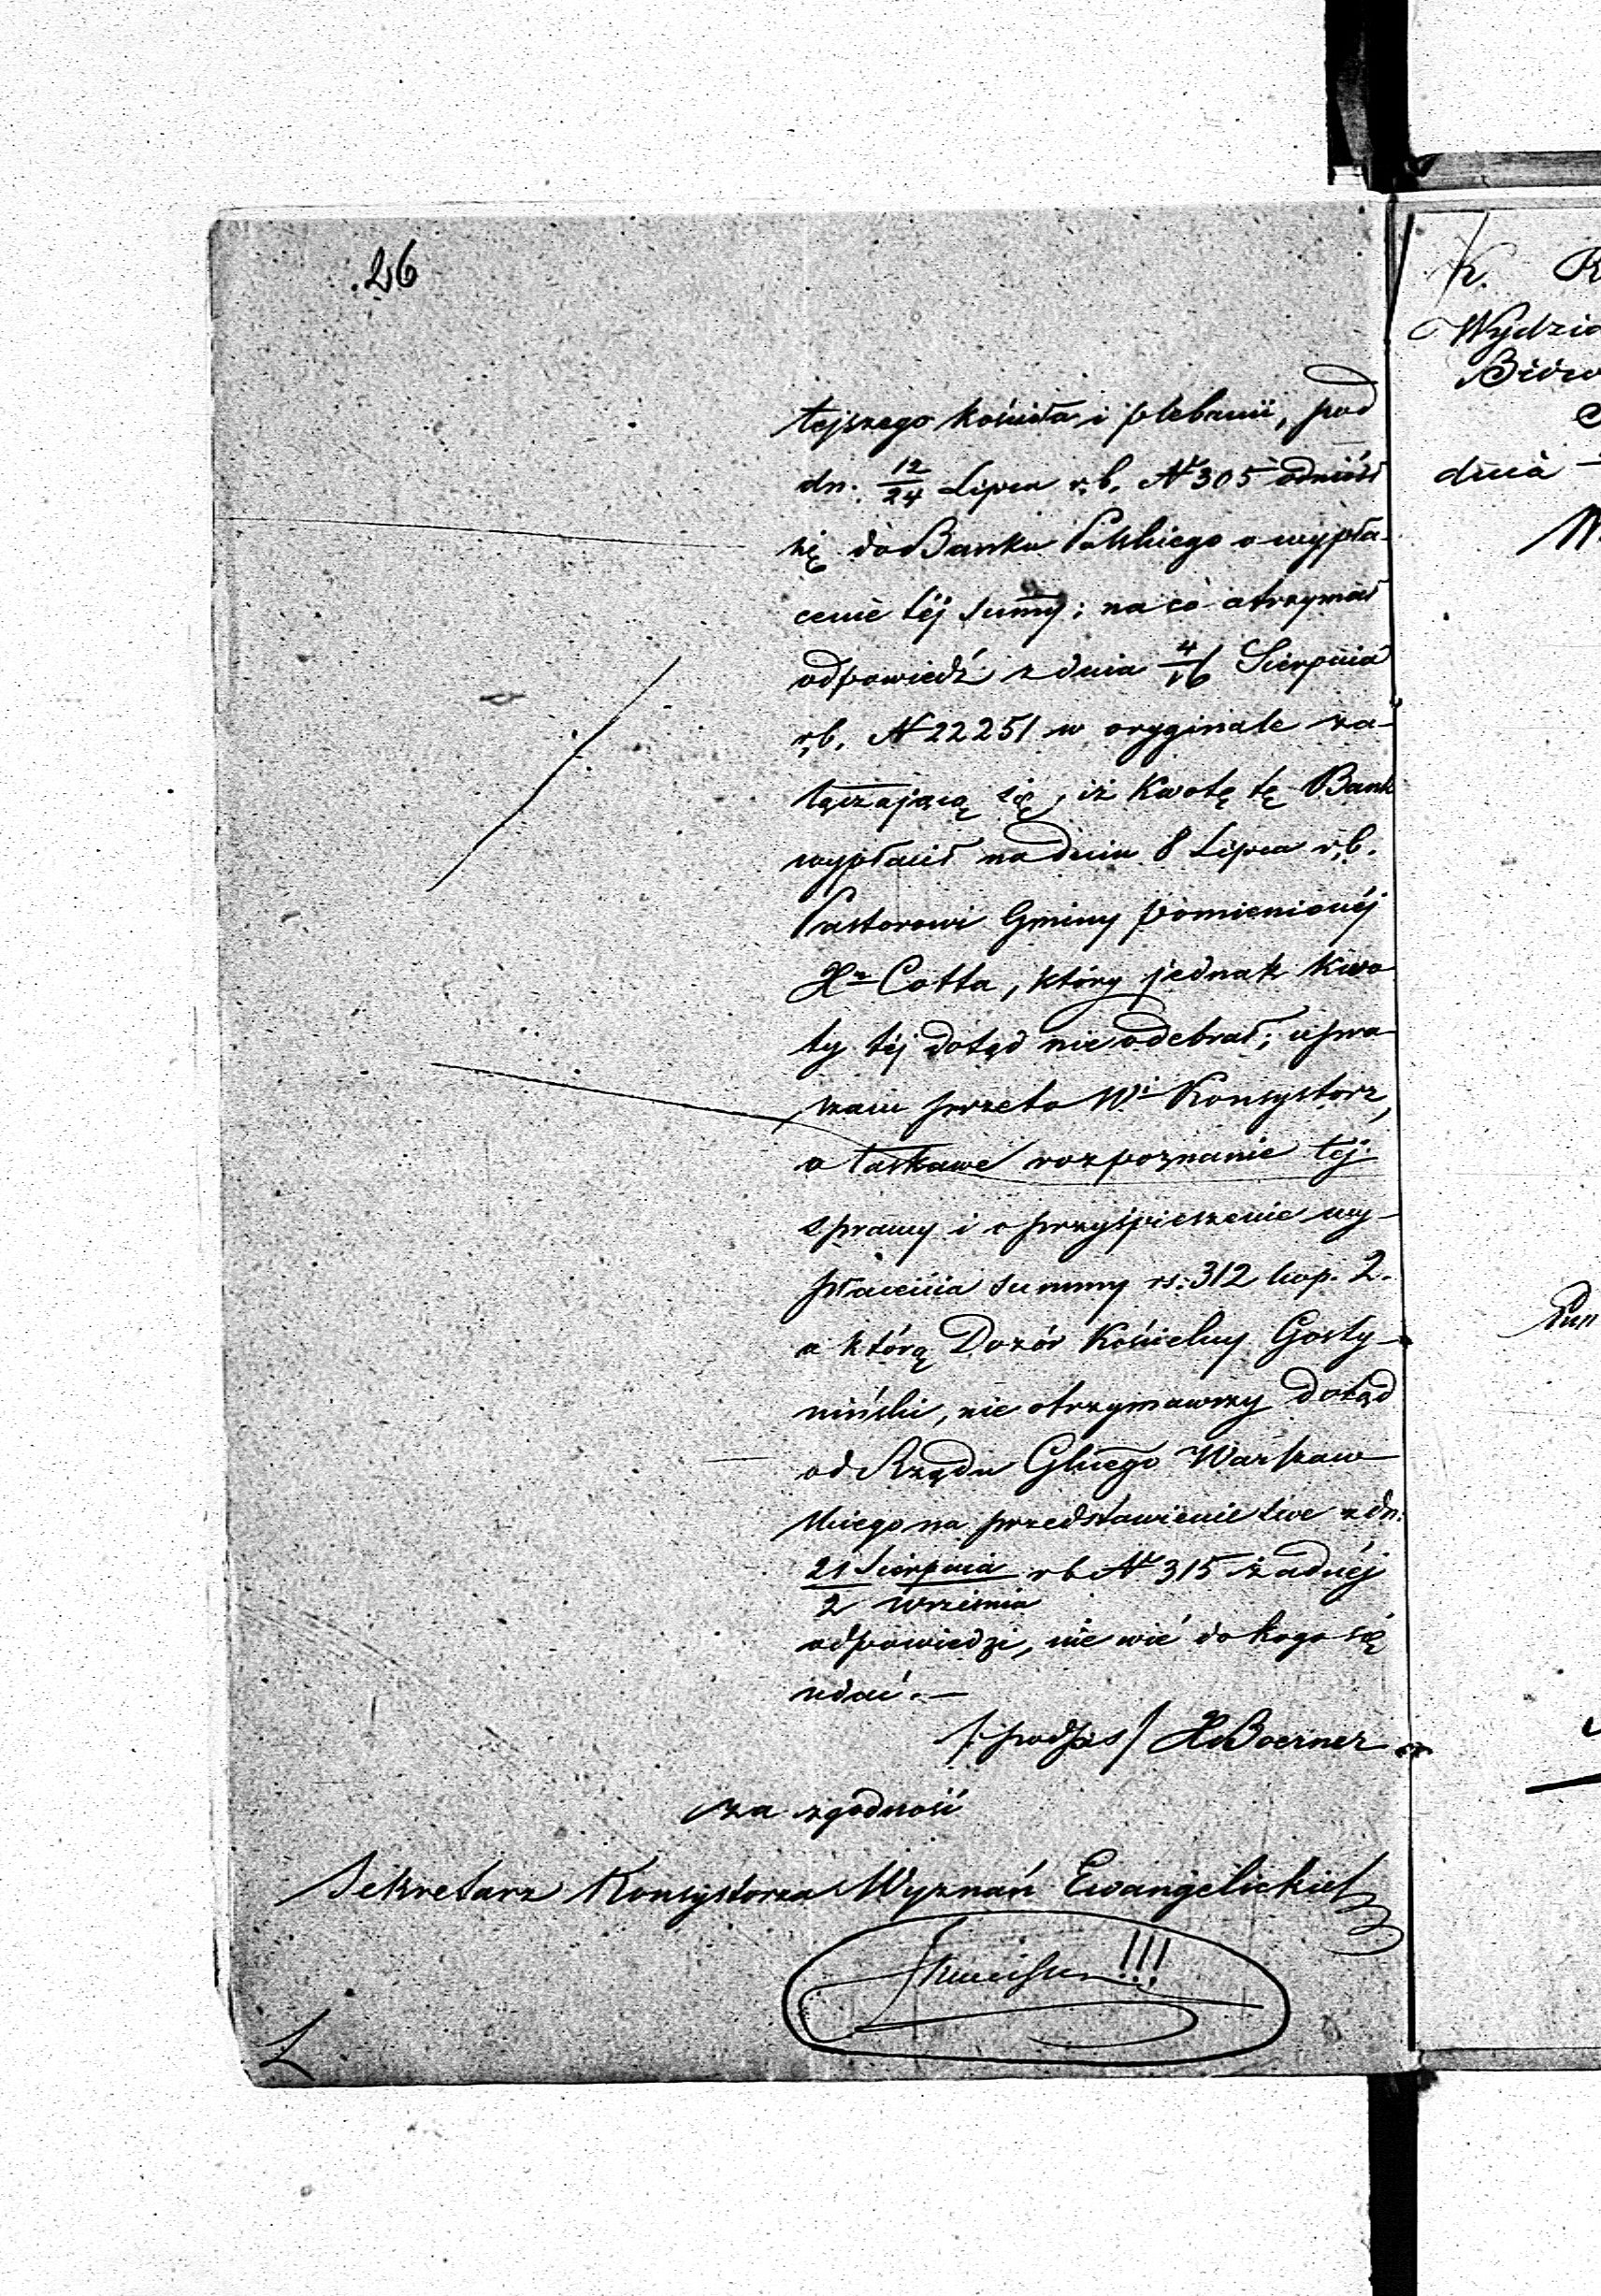 26
tejszego kościoła i plebanii, pod
dn. 12/24 Lipca r.b. N 305 odniósł
się do Banku Polskiego o wypła-
cenie téj summy; na co otrzymał
odpowiedź z dnia 4/16 Sierpnia
r.b. N 22251 w oryginale za-
łączającą się, iż kwotę tę Bank
wypłacił na dniu 8 Lipca r.b.
Pastorowi Gminy pomienionéj
Xu Cotta, który jednak kwo
ty téj dotąd nie odebrał; upra
szam przeto Wi Konsystorz,
o łaskawe rozpoznanie téj
sprawy i o przyśpieszenie wy-
płacenia summy rs: 312 kop. 2.
o którą Dozór Kościelny Gosty-
niński, nie otrzymawszy dotąd
od Rządu Gbnego Warszaw
skiego na przedstawienie swe z dn.
21 Sierpnia/2 Września r b N 315 żadnéj
odpowiedzi, nie wié do kogo się
udać. —
/: podpis / X Boerner
za zgodność
Sekretarz Konsystorza Wyznań Ewangelickich
K. R
Wydzia
Bióro
dnia